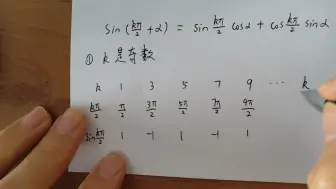 sin(kπ/2 + α) = sin kπ/2 cosα + cos kπ/2 sinα
① k是奇数
k 1 3 5 7 9 ⋯ k
kπ/2 π/2 3π/2 5π/2 7π/2 9π/2
sin kπ/2 1 -1 1 -1 1